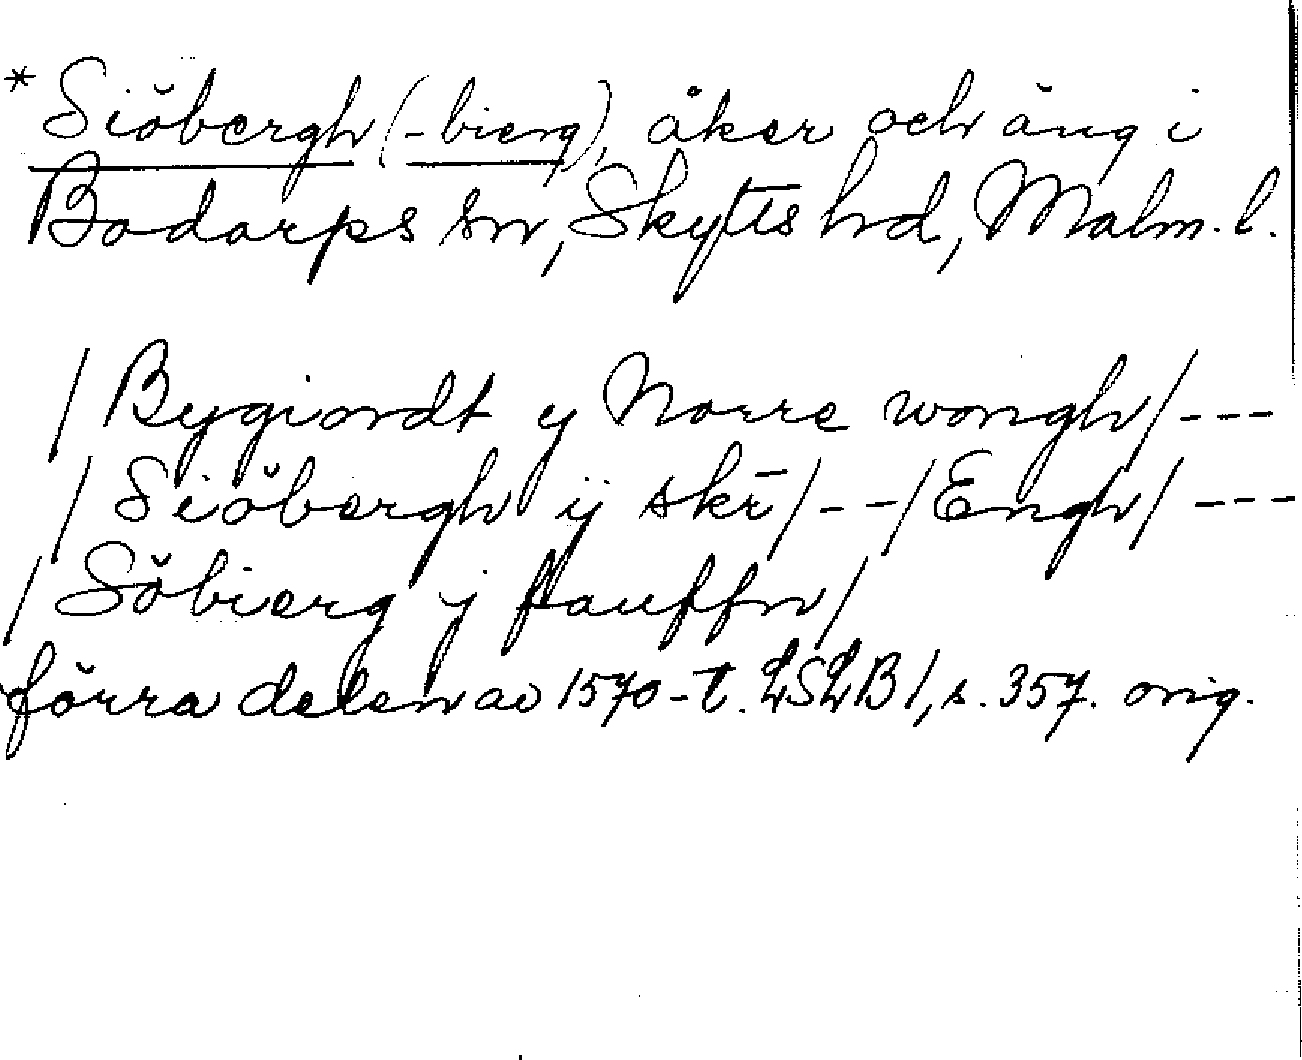 * Siöbergh (-bierg), åker och äng i
Bodarps sn, Skytts hd, Malm. l.
/ Bygiordt y Norre wongh / ---
/ Siöbergh ij skr̄ / -- / Engh / ---
/ Söbierg j Hauffn /
förra delen av 1570-t. LSLB 1, s. 357. orig.